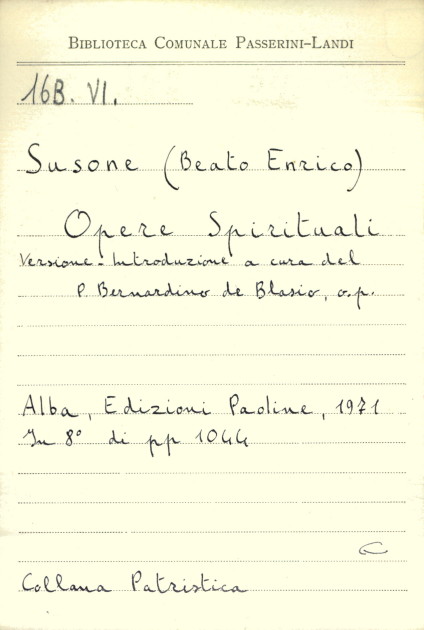 BIBLIOTECA COMUNALE PASSERINI-LANDI
16B. VI.
Susone (Beato Enrico)
Opere Spirituali
Versione - Introduzione a cura del
P. Bernardino de Blasio, o.p.
Alba, Edizioni Paoline, 1971
In 8° di pp 1044
Collana Patristica